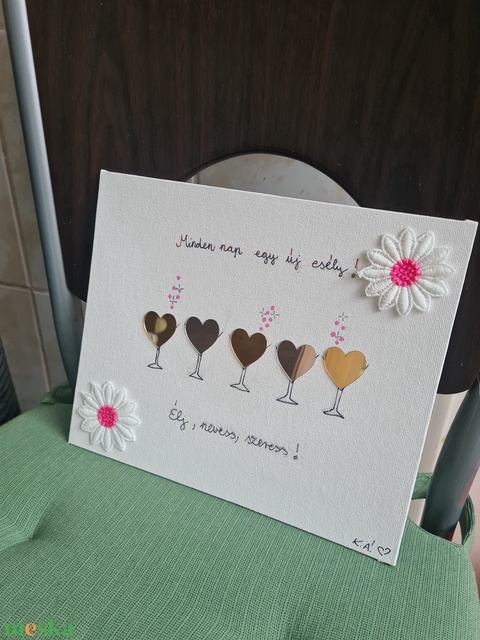 Minden nap egy új esély!
Élj, nevess, szeress!
K.A!
meska